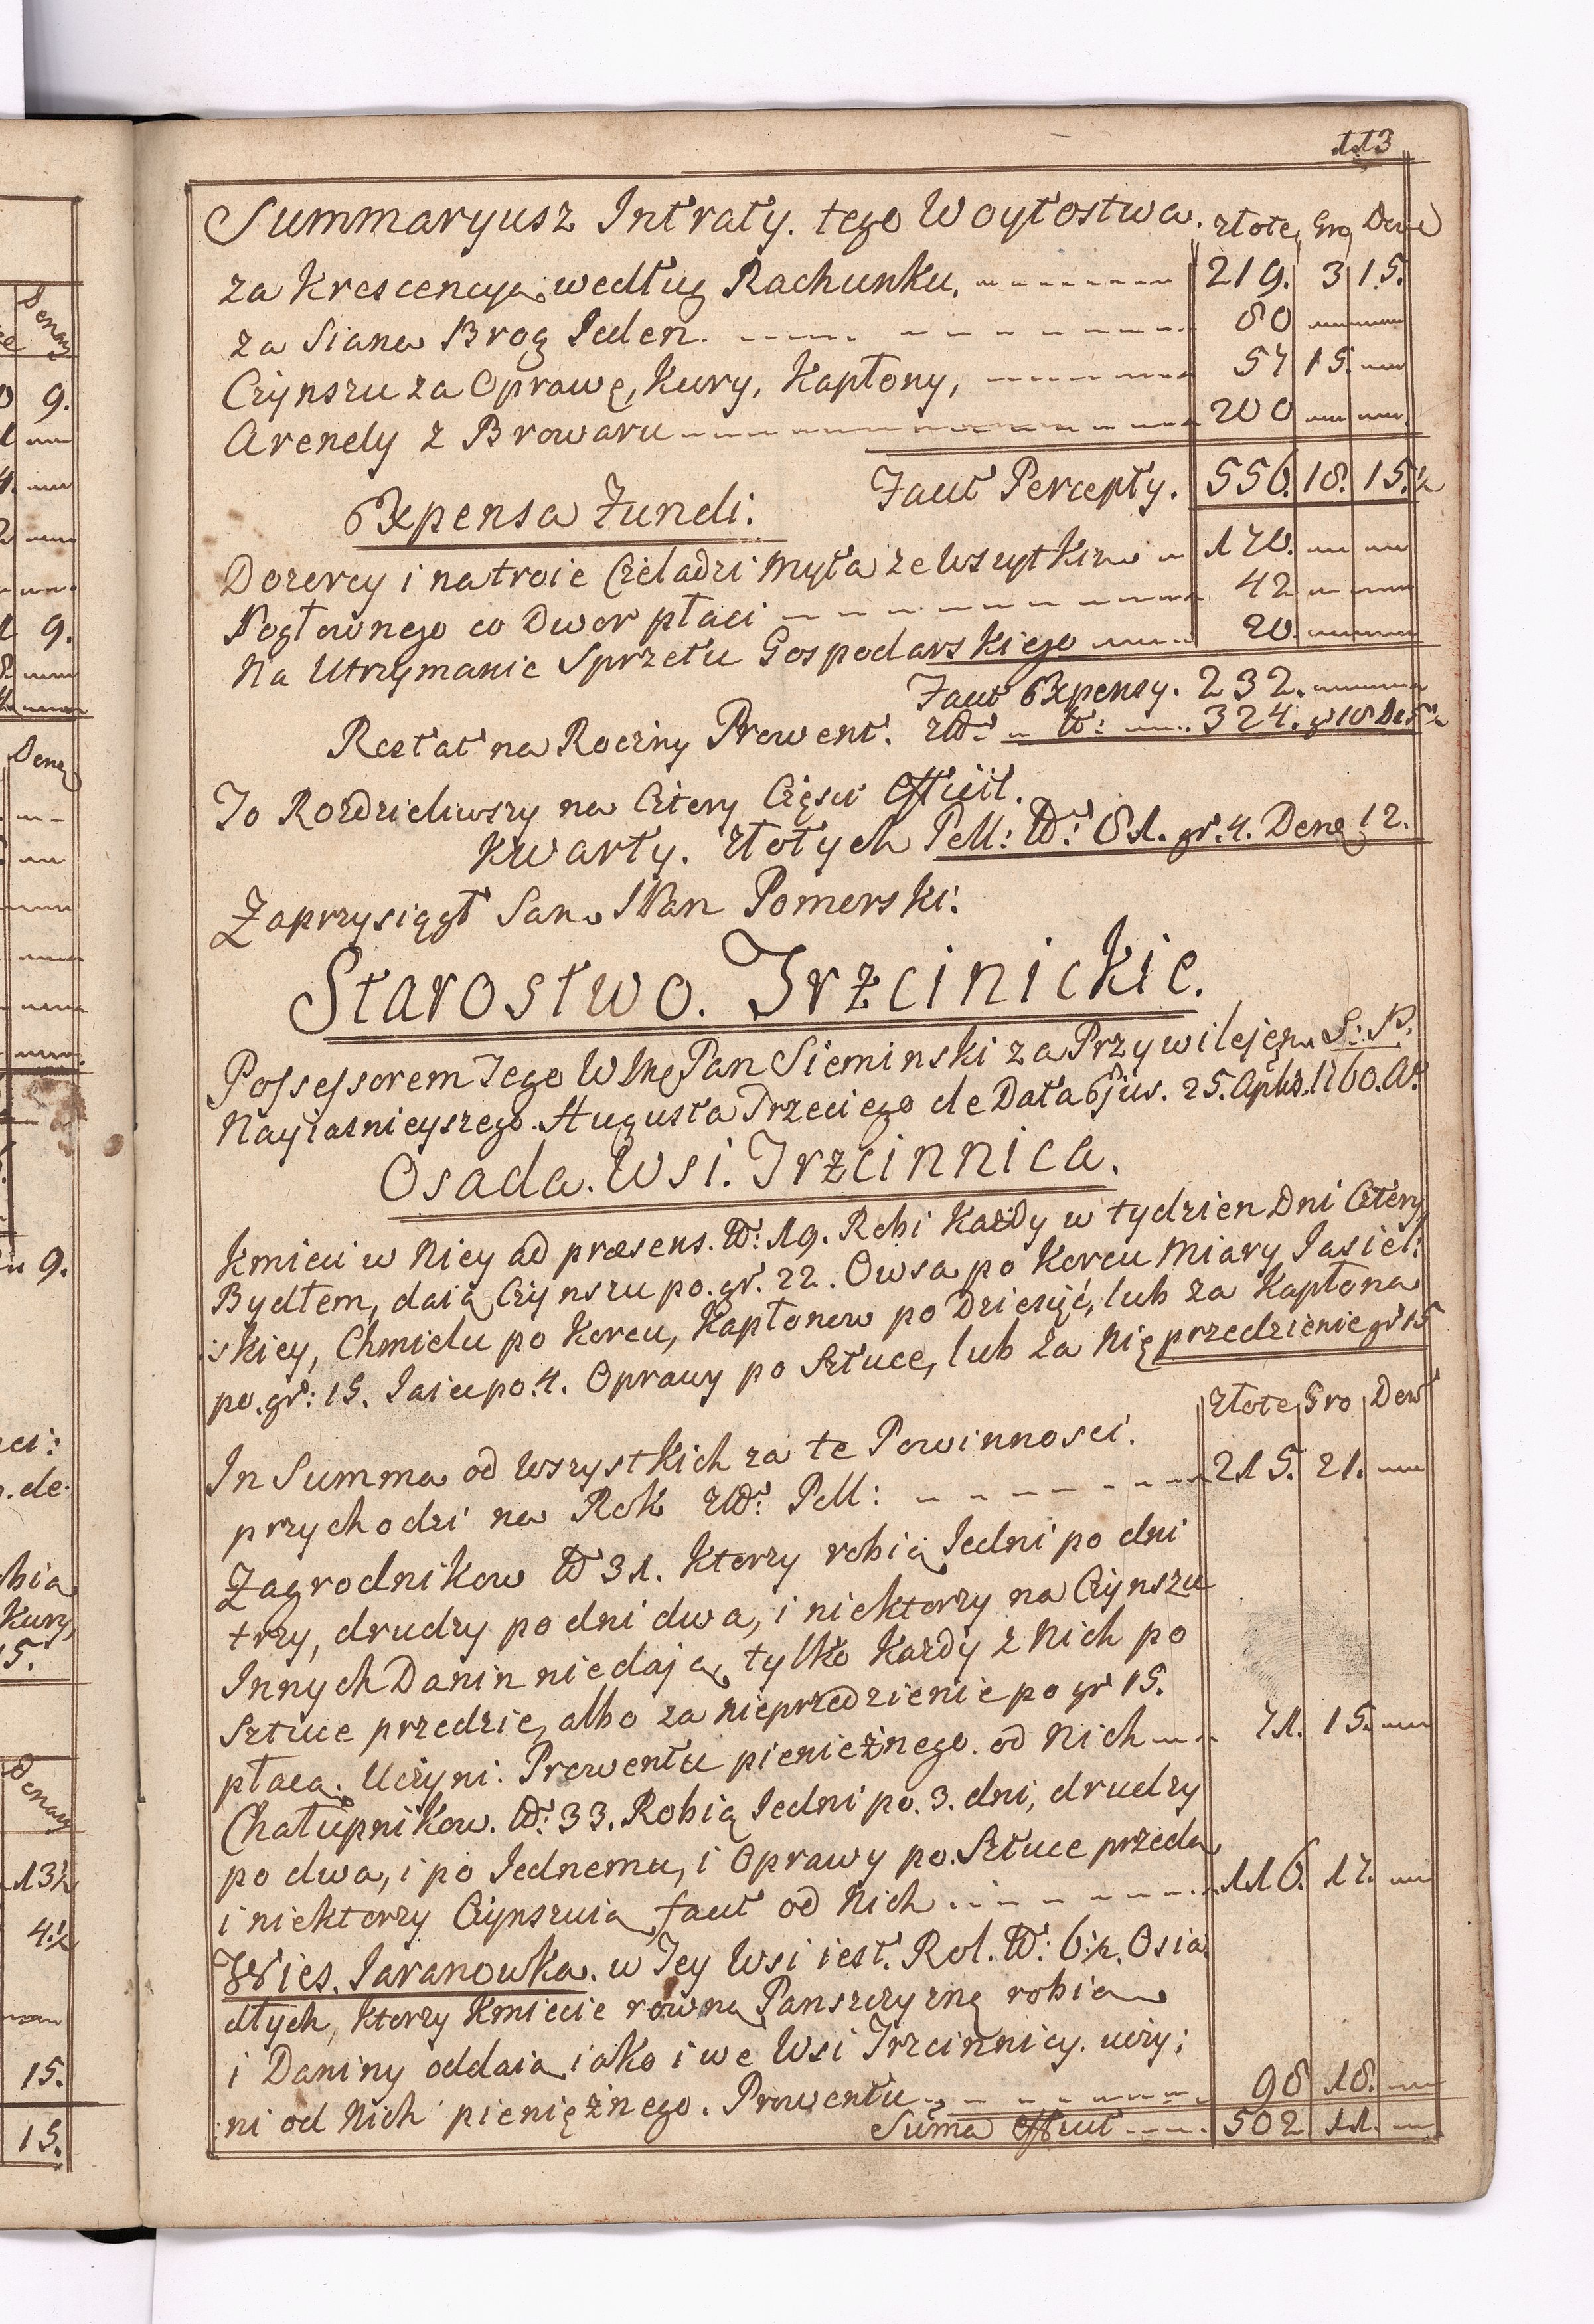 113
Summaryusz Intraty. tego Woytostwa. złote, Gro, Den
za Krescencyą według Rachunku. 219. 3 15.
za Siana Brog Ieden. 80
Czynszu za Oprawę, Kury, Kapłony, 57 15.
Arendy z Browaru 200
Facit Percepty. 556. 18. 15.½
Expensa Fundi.
Dozorcy i na troie Czeladzi Myta ze Wszytkim 170.
Pogłownego co Dwor płaci 42
Na Utrzymanie Sprzetu Gospodarskiego 20.
Facit Expensy. 232.
Restat na Roczny Prowent. 324. gr 18 De
To Rozdzieliwszy na Cztery Części Efficit.
Kwarty. złotych Poll: 81. gr. 4. Dena 12.
Zaprzysiągł Sam Pan Pomerski.
Starostwo. Trzcinickie.
Possessorem Tego Wny Pan Sieminski za Przywilejem S: P.
Nayiasnieyszego Augusta Trzeciego de Data Ejus. 25. Aprlis. 1760. Ao
Osada. Wsi. Trzcinnica.
Kmieci w Niey ad præsens. No: 19. Robi Każdy w tydzien Dni Cztery
Bydłem, daią Czynszu po. gr. 22. Owsa po Korcu Miary Iasiel:
skiey, Chmielu po Korcu, Kapłonow po Dziesięć, lub za Kapłona
po. gr: 15. Iaiec po. 4. Oprawy po Sztuce, lub za Nię przedzienie gr 15
złote, Gro, Den
In Summa od wszystkich za te Powinnosci.
przychodzi na Rok Poll: 215. 21.
Zagrodnikow No 31. Ktorzy robią Iedni po dni
trzy, drudzy po dni dwa, i niektorzy na Czynszu
Innych Danin niedają, tylko Każdy z Nich po
Sztuce przedzie, albo za nieprzedzienie po gr 15.
płacą. Uczyni. Prowentu pienieżnego. od Nich 71. 15.
Chałupnikow. No: 33. Robią Iedni po. 3. dni, drudzy
po dwa, i po Iednemu, i Oprawy po. Sztuce przeda
i niektorzy Czynszuią facit od Nich 116. 17.
Wies. Iaranowka. w Tey Wsi iest. Rol. No: 6½. Osia
dłych, Ktorzy Kmiecie rowną Panszczyznę robią
i Daniny oddaią iako i we Wsi Trzcinnicy. uczy:
ni od Nich pieniężnego. Prowentu 98 18.
Suma Efficit 502 11.